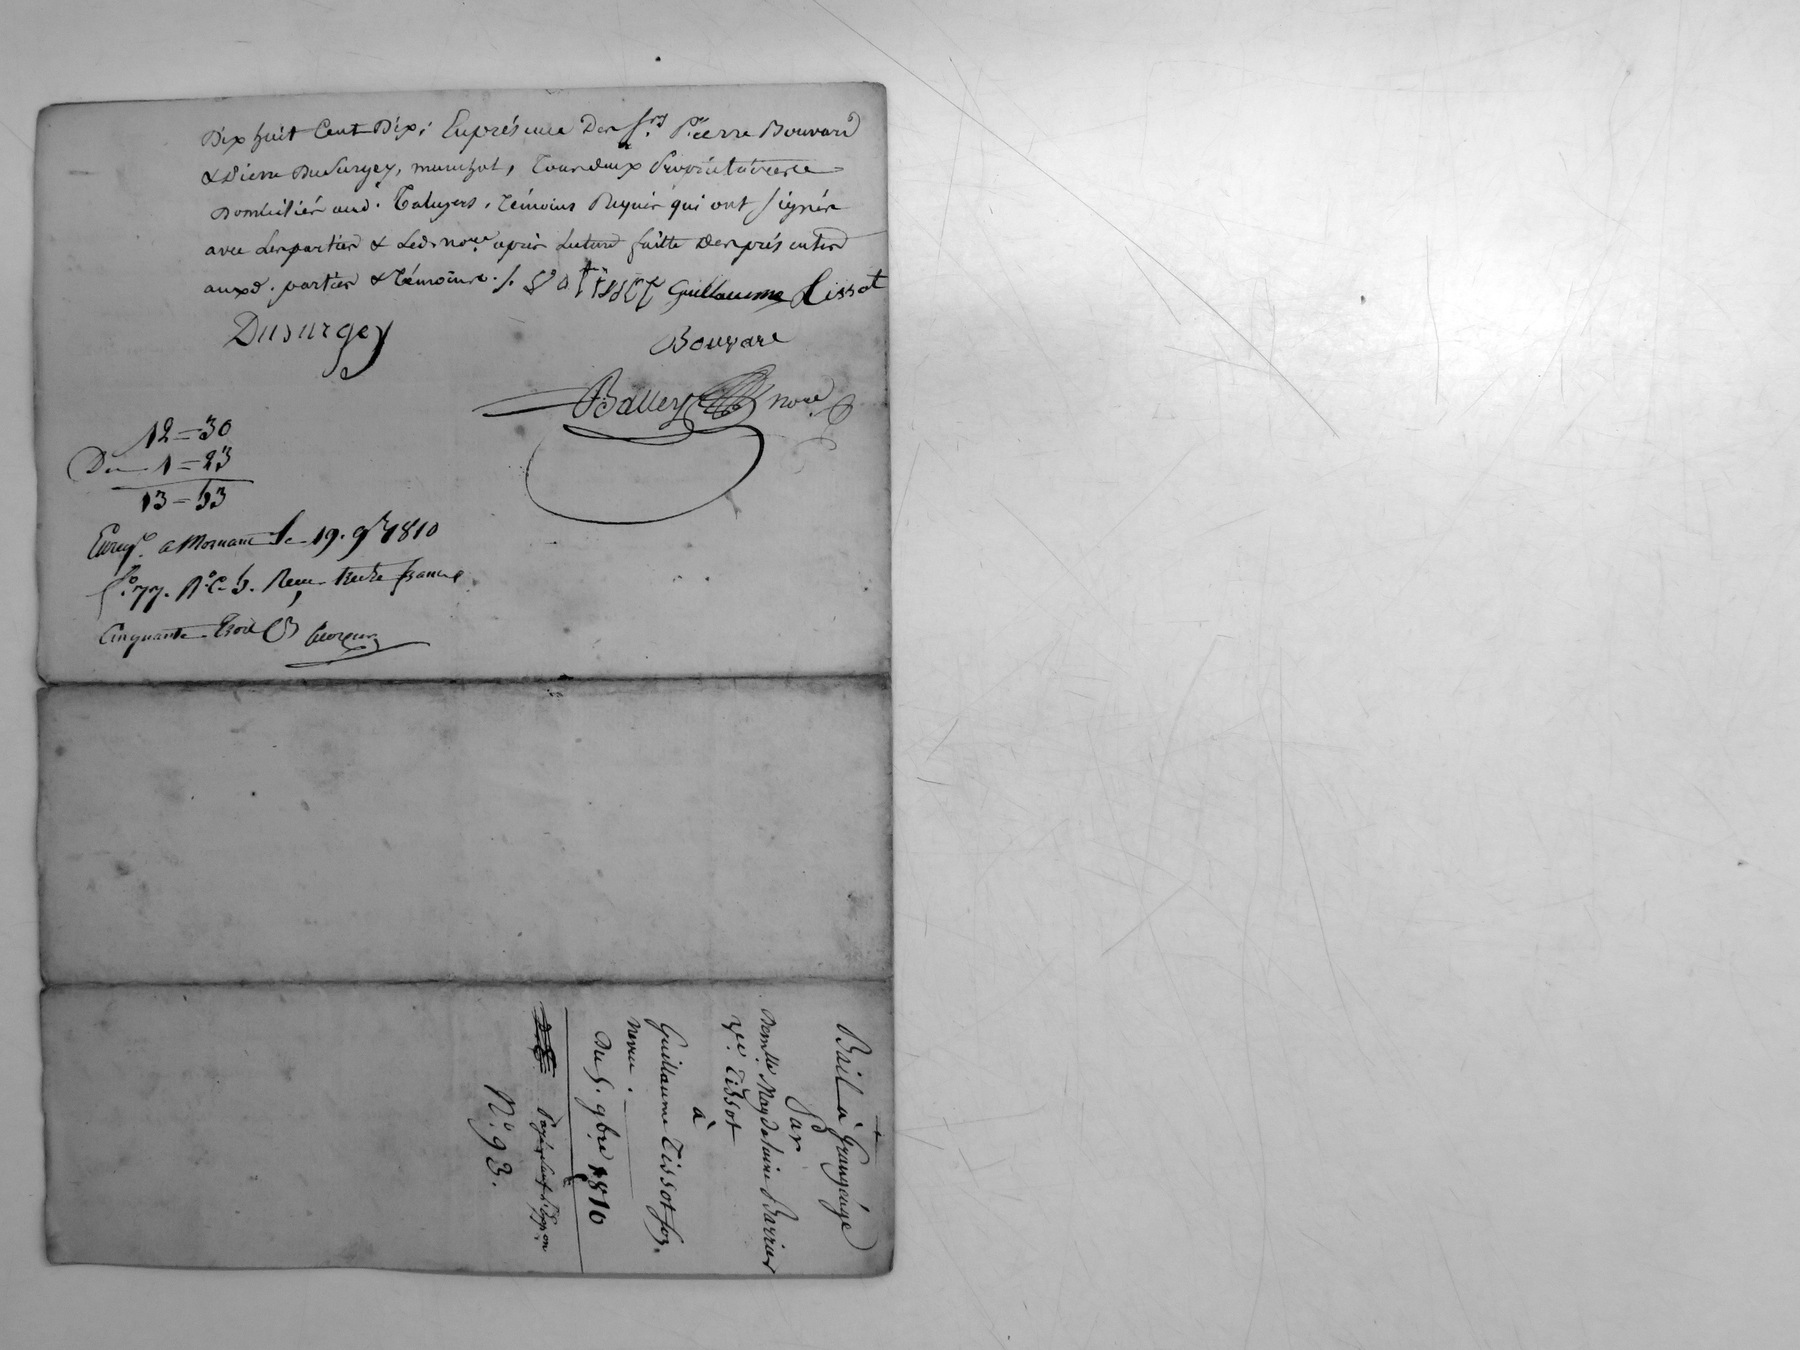 Dix huit Cent Dix; En présence Des Srs Pierre Bouvard
& Pierre Dusurgey, marechal, tous deux
Domiciliés aud. Taluyers, témoins Requis qui ont signés
avec Les parties & Led. nore. après Lecture faitte Des présentes
auxd. parties & témoins ./. Ve Tissot Guillaume Tissot
Dusurgey
Bouvare
Balley nore
12=30
De 1=23
13=53
Enregé. a Mornant le 19. 9bre 1810
fo. 77. Ro. C. 5. Recu treize francs
Cinquante trois
Bail à Grangeage
Par
Demlle Magdelaine Barrier
Ve. Tissot
à
Guillaume Tissot son
neveu.
Du 5. 9bre 1810
No. 93.